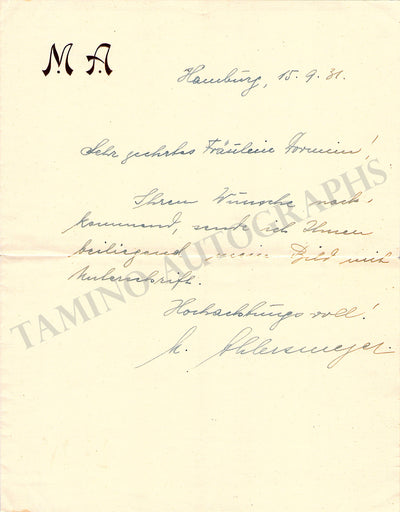 M. A.
Hamburg, 15.9.31.
Sehr geehrtes Fräulein
Ihren Wunsche nach-
kommend, sende ich Ihnen
beiliegend mein Bild mit
Unterschrift.
Hochachtungsvoll!
M. Ahlersmeyer.
TAMINO AUTOGRAPHS